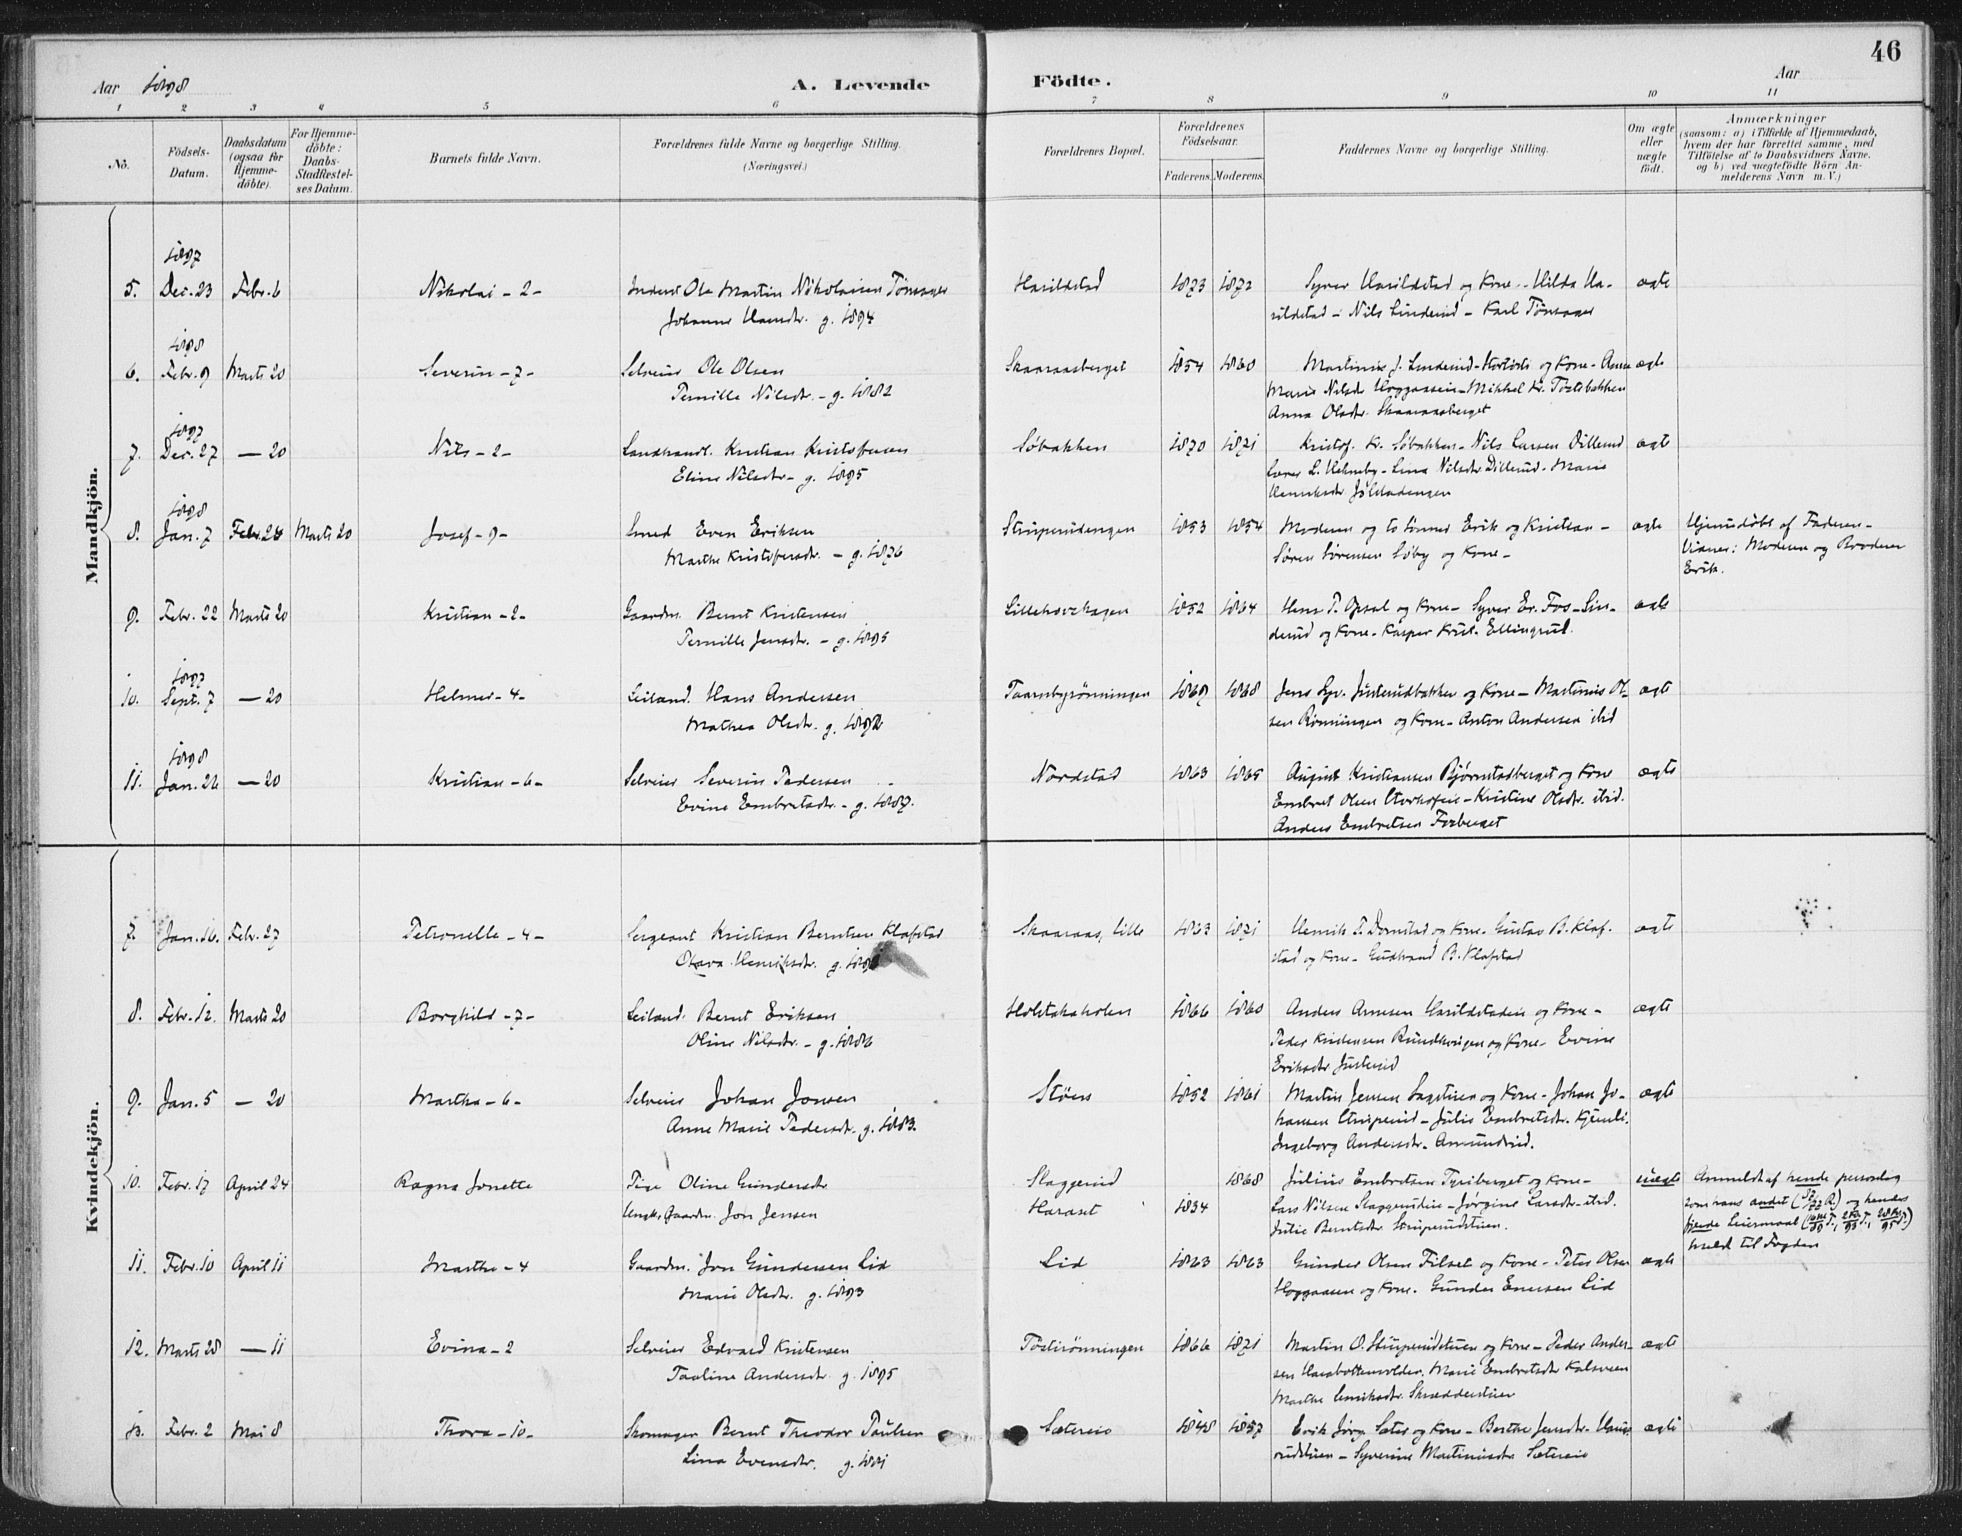 46
Aar 1898
A. Levende Födte.
Aar
1 2 3 4 5 6 7 8 9 10 11
No.
Födsels-Datum.
Daabsdatum (ogsaa for Hjemme-döbte).
For Hjemme-döbte: Daabs-Stadfæstel-ses Datum.
Barnets fulde Navn.
Forældrenes fulde Navne og borgerlige Stilling. (Næringsvei.)
Forældrenes Bopæl.
Forældrenes Födselsaar.
Faderens. Moderens.
Faddernes Navne og borgerlige Stilling.
Om ægte eller uægte födt.
Anmærkninger
(sansom: a) i Tilfælde af Hjemmedaab,
hvem der har forrettet samme, med
Tilföielse af to Daabsvidners Navne.
og b) ved uægtefödte Börn An-
melderens Navn m. V.)
Mandkjön.
1897
5. Dec. 23 Febr. 6 Nikolai - 2 - Inderst Ole Martin Nikolaisen Tönsager Harildstad 1873 1872 Syver Harildstad og Kone - Hilda Ha- ægte
Johanne Hansdr. g. 1894 rildstad - Nils Linderud - Karl Tönsager
1898
6. Febr. 9 Marts 20 Severin - 7 - Selveier Ole Olsen Skaaraasberget 1854 1860 Martinus J. Linderud og Kone - Anne ægte
Pernille Nilsdr. - g. 1882 Marie Nilsdr. - Mikkel Kr.
Anna Olsdr. Skaaraasberget
1897
7. Dec. 27 — 20 Nils - 2 - Landhandl. Kristian Kristofersen Söbakken 1870 1871 Kristof. Kr. Söbakken - Nils Larsen Dillerud ægte
Eline Nilsdr - g. 1895 Lina Nilsdr Dillerud - Marie
1898
8. Jan. 7 Febr. 24 Marts 20 Josef - 9 - Smed Even Eriksen Striperudengen 1853 1854 Moderen og to Sönner Erik og Kristian - ægte Hjemdöbt af Faderen -
Marthe Kristofersdr. - g. 1876 Sören Sörensen Söby og Kone - Vidner: Moderen og Broderen
Erik.
9. Febr. 22 Marts 20 Kristian - 2 - Gaardm. Bernt Kristensen Lillehovehagen 1852 1864 Hans P. Opsal og Kone - Syver Er. Fos - Lin- ægte
Pernille Jensdr. - g. 1895 derud og Kone - Kasper Krist. Ellingrud.
1897
10. Sept. 7 — 20 Helmer - 4 - Leiland. Hans Andersen Taarnbyrönningen 1869 1868 Jens Syv. Justerudbakken og Kone - Martinus Ol- ægte
Mathea Olsdr. g. sen Rönningen og Kone - Anton Andersen ibid
1898
11. Jan. 26 — 20 Kristian - 6 - Selveier Severin Pedersen Nordstad 1863 1865 August Kristiansen Björnstadberget og Kone ægte
Evine Embretsdr. - g. 1887. Embret Olsen - Kristine Olsdr. ibid.
Anders Embretsen Furberget
Kvindekjön.
7. Jan. 16. Febr. 27 Petronelle - 4 - Sergeant Kristian Berntsen Klafstad Skaaraas, Lille 1863 1871 Henrik P. Dornstad og Kone - Gustav B. Klaf- ægte
Olava Henriksdr. g. stad og Kone - Gudbrand B. Klafstad
8. Febr. 12. Marts 20 Borghild - 7 - Leiland. Bernt Eriksen Holstakaholen 1866 1860 Anders Arnesen Harildstadeie og Kone - ægte
Oline Nilsdr. - g. 1886 Peder Kristensen og Kone - Evine
Eriksdr Justerud
9. Jan. 5 — 20 Martha - 6 - Selveier Johan Jonsen Stöen 1852 1861 Martin Jensen Sagstuen og Kone - Johan Jo- ægte
Anne Marie Pedersdr. g. 1883. hansen Striperud - Julie Embretsdr.
Ingeborg Andersdr - Amundrud.
10. Febr. 17 April 24 Ragna Jonette Pige Oline Gundersdr Slaggerud 1868 Julius Embretsen Tyriberget og Kone - uægte Anmeldt af hende personlig
Ungk. Gaardm. Jon Jensen Haraset 1834 Lars Nilsen Slaggerudeie - Jörgine Larsdr. ibid. som hans andet og hendes
Julie Berntsdr Striperudstuen. fjerde Leiermaal
meld. til Fogden
11. Febr. 10 April 11 Marthe - 4 Gaardm. Jon Gundersen Lid Lid 1863 1863 Gunder Olsen Filset og Kone - Peter Olsen ægte
Marie Olsdr. g. 1893 Hoggaasen og Kone. Gunder Enersen Lid
12. Marts 28 — 11 Evina - 2 Selveier Edvard Kristensen Töstirönningen 1866 1871 Martin O. Striperudstuen og Kone - Peder Ander- ægte
Pauline Andersdr g. 1895 sen Marie Embretsdr Kalsveen
Marthe Skrædderstuen
13. Febr. 2 Mai 8 Thora - 10 - Skomager Bernt Theodor Paulsen Sætereie 1848 1857 Erik Jörg. Sæter og Kone - Berthe Jensdr. ægte
Lina Evensdr. g. 1881 Syverine Martinusdr Sætereie